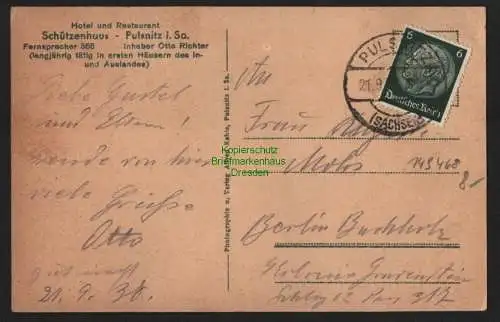 Hotel und Restaurant
Schützenhaus - Pulsnitz i. Sa.
Fernsprecher 368 Inhaber Otto Richter
(langjährig tätig in ersten Häusern des In-
und Auslandes)
Liebe Gustel
und Eltern!
sende von hier
viele Grüsse
Otto
21. 9. 36.
Photographie u. Verlag Alfred Kahle, Pulsnitz i. Sa.
An
Frau
Berlin Buchholz
Kolonie Gravenstein
PULS
21.9
(SACHSEN)
6 6
Deutsches Reich
Kopierschutz
Briefmarkenhaus
Dresden
145468
8.-